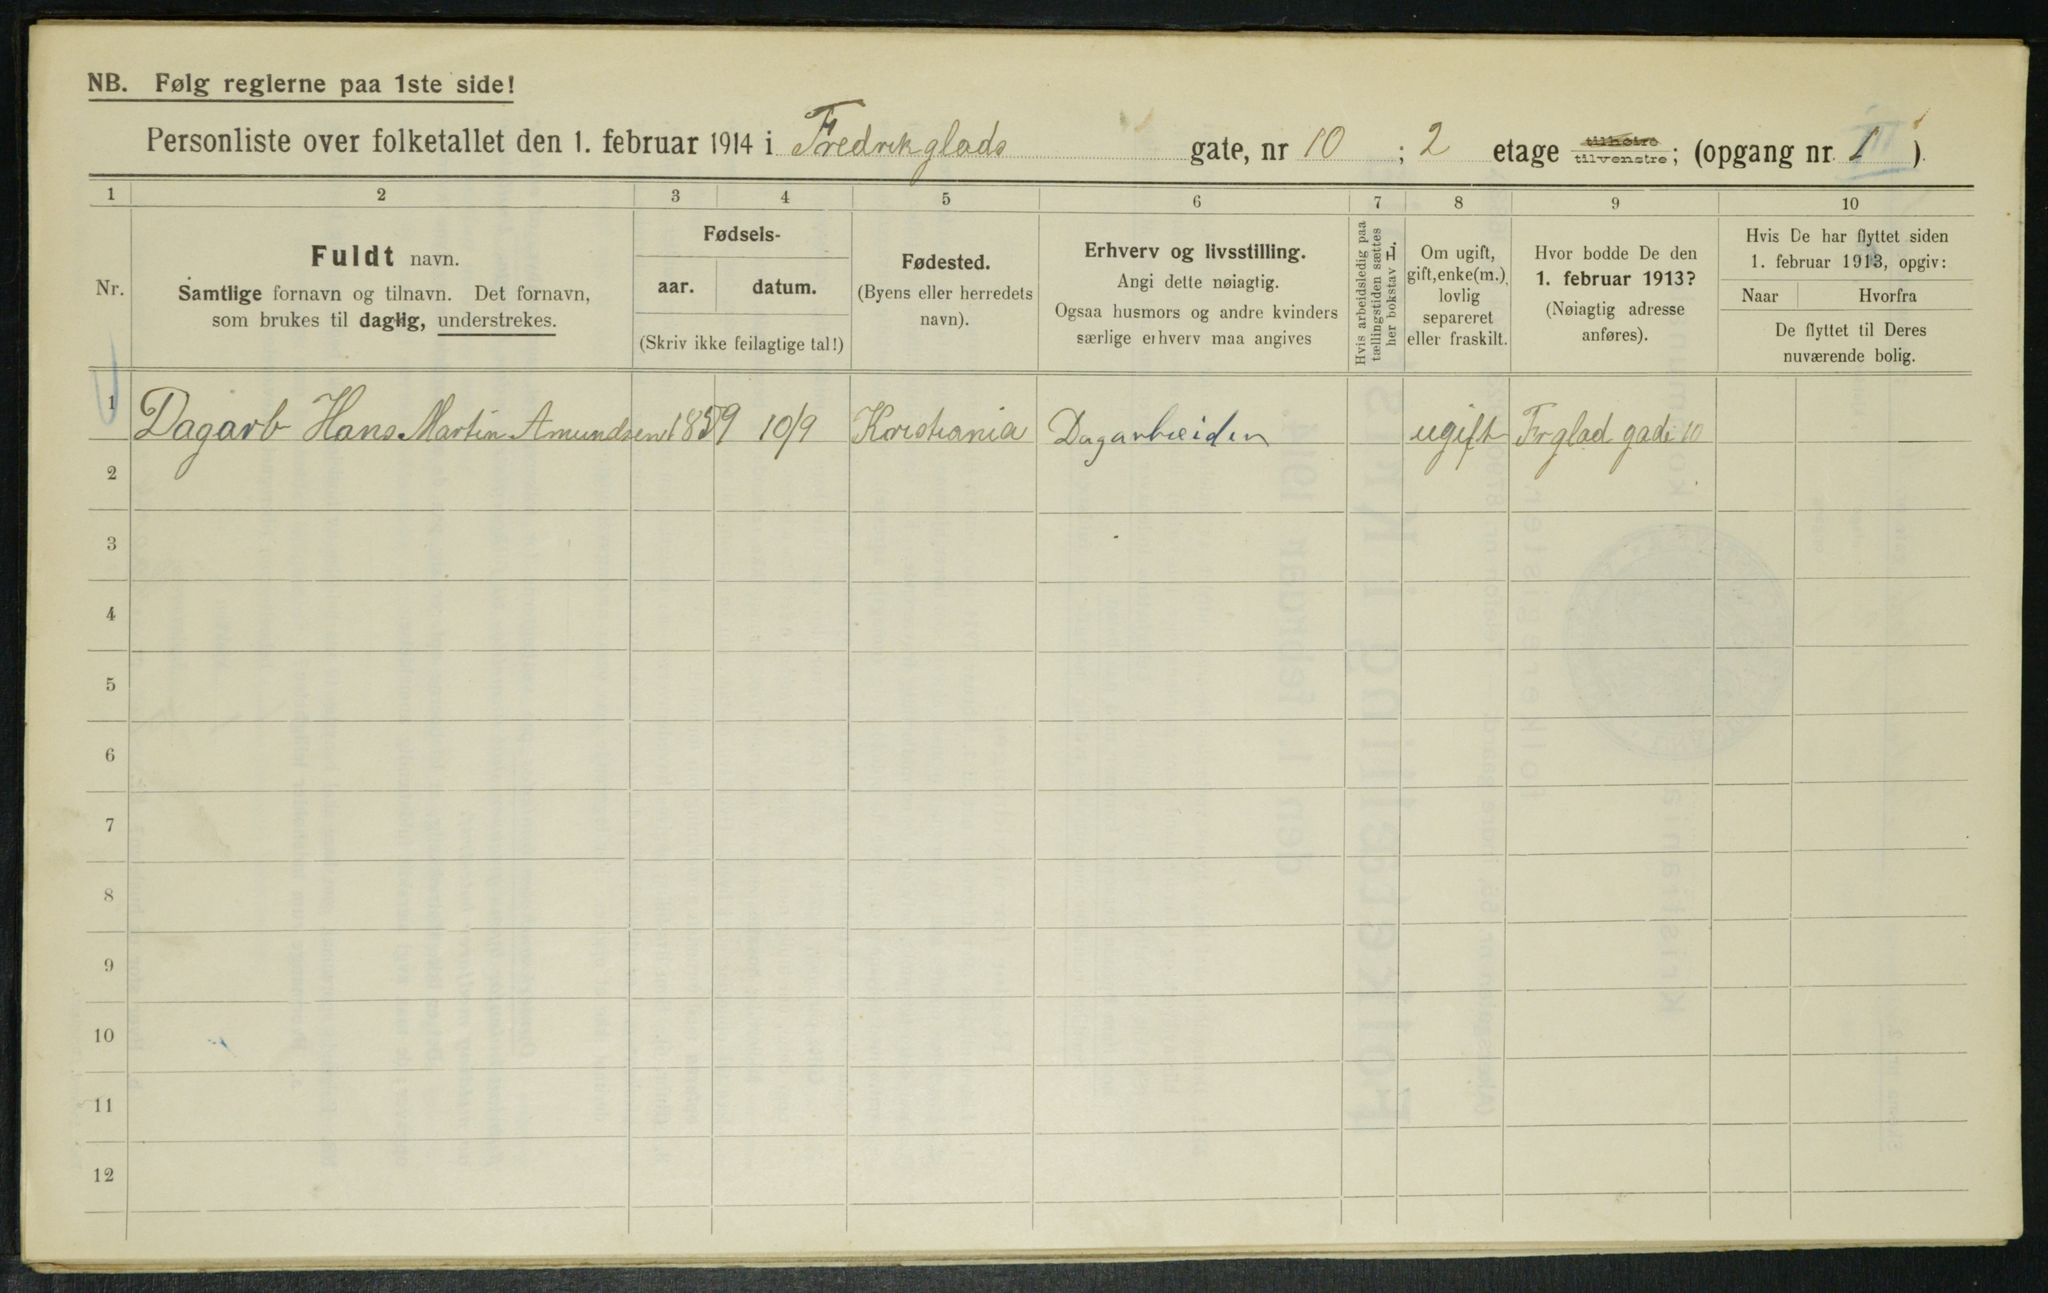 NB. Følg reglerne paa 1ste side!
Personliste over folketallet den 1. februar 1914 i Fredrikglads gate, nr 10 ; 2 etage tilhøire tilvenstre; (opgang nr. 1 ).
1 2 3 4 5 6 7 8 9 10
Nr.
Fuldt navn.
Samtlige fornavn og tilnavn. Det fornavn,
som brukes til daglig, understrekes.
Fødsels-
aar. datum.
(Skriv ikke feilagtige tal!)
Fødested.
(Byens eller herredets
navn).
Erhverv og livsstilling.
Angi dette nøiagtig.
Ogsaa husmors og andre kvinders
særlige erhverv maa angives
Hvis arbeidsledig paa
tællingstiden sættes
her bokstav L.
Om ugift,
gift, enke(m.),
lovlig
separeret
eller fraskilt.
Hvor bodde De den
1. februar 1913?
(Nøiagtig adresse
anføres).
Hvis De har flyttet siden
1. februar 1913, opgiv:
Naar Hvorfra
De flyttet til Deres
nuværende bolig.
1 Dagarb Hans Martin Amundsen 1859 10/9 Kristiania Dagarbeider ugift Fr glad gade 10
2
3
4
5
6
7
8
9
10
11
12